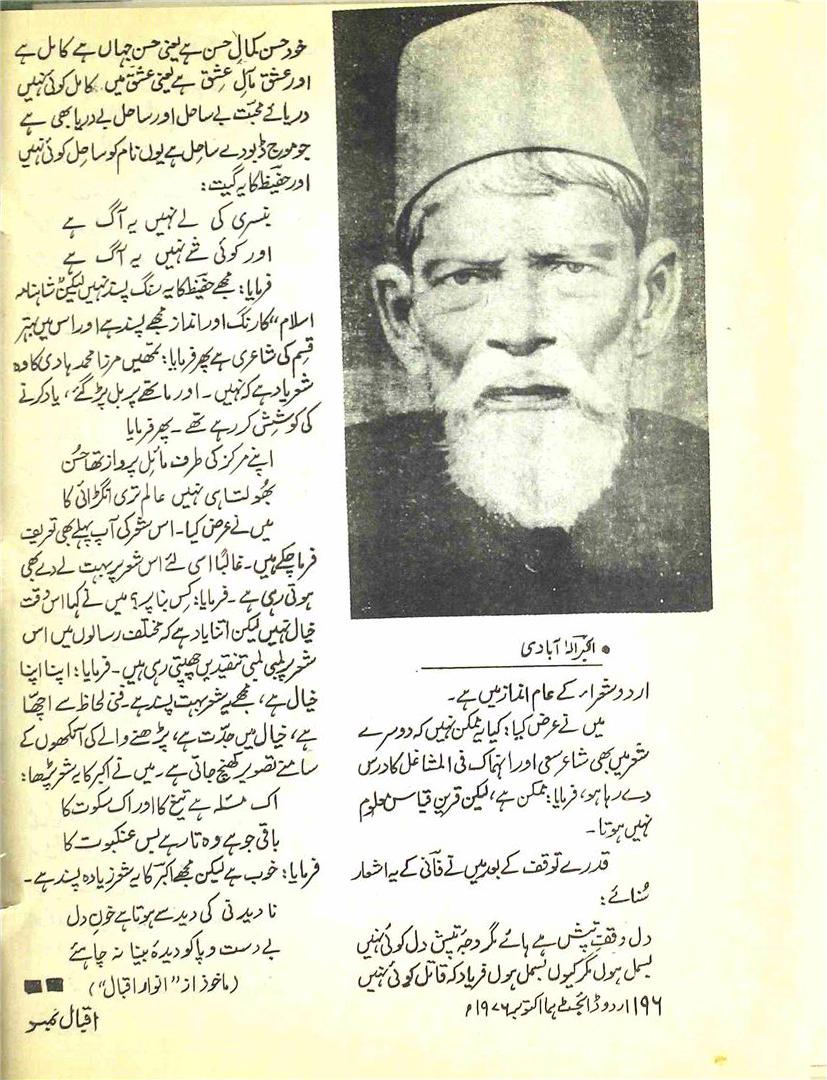 ● اکبر الہٰ آبادی
اردو شعراء کے عام انداز میں ہے۔
میں نے عرض کیا: کیا یہ ممکن نہیں کہ دوسرے
شعر میں بھی شاعر سعی اور انہماک فی المشاغل کا درس
دے رہا ہو، فرمایا: ممکن ہے، لیکن قرینِ قیاس معلوم
نہیں ہوتا۔
قدرے توقف کے بعد میں نے فانی کے یہ اشعار
سُنائے:
دل وقفِ تپش ہے ہائے مگر وجۂ تپشِ دل کوئی نہیں
بسمل ہوں مگر کیوں بسمل ہوں فریاد کہ قاتل کوئی نہیں
خود حسن کمالِ حسن ہے یعنی حسن جہاں ہے کامل ہے
اور عشق مآلِ عشق ہے یعنی عشق میں کامل کوئی نہیں
دریائے محبّت بے ساحل اور ساحل بے دریا بھی ہے
جو موج ڈبو دے ساحل ہے یوں نام کو ساحل کوئی نہیں
اور حفیظ کا یہ گیت:
بنسری کی لے نہیں یہ آگ ہے
اور کوئی شے نہیں یہ آگ ہے
فرمایا: مجھے حفیظ کا یہ رنگ پسند نہیں لیکن "شاہنامہ
اسلام" کا رنگ اور انداز مجھے پسند ہے اور اس میں بہتر
قسم کی شاعری ہے پھر فرمایا: تمھیں مرزا محمد ہادی کا وہ
شعر یاد ہے کہ نہیں۔ اور ماتھے پر بل پڑ گئے، یاد کرنے
کی کوشش کر رہے تھے۔ پھر فرمایا
اپنے مرکز کی طرف مائلِ پرواز تھا حُسن
بھولتا ہی نہیں عالم تری انگڑائی کا
میں نے عرض کیا۔ اس شعر کی آپ پہلے بھی تعریف
فرما چکے ہیں۔ غالباً اسی لئے اس شعر پر بہت لے دے بھی
ہوتی رہی ہے۔ فرمایا: کس بنا پر؟ میں نے کہا اس وقت
خیال نہیں لیکن اتنا یاد ہے کہ مختلف رسالوں میں اس
شعر پر لمبی لمبی تنقیدیں چھپتی رہی ہیں۔ فرمایا: اپنا اپنا
خیال ہے، مجھے یہ شعر بہت پسند ہے۔ فنی لحاظ سے اچھّا
ہے، خیال میں جدّت ہے، پڑھنے والے کی آنکھوں کے
سامنے تصویر کھنچ جاتی ہے۔ میں نے اکبر کا یہ شعر پڑھا:
اک مسئلہ ہے تیغ کا اور اک سکوت کا
باقی جو ہے وہ تار ہے بس عنکبوت کا
فرمایا: خوب ہے لیکن مجھے اکبرؔ کا یہ شعر زیادہ پسند ہے۔
نا دیدنی کی دید سے ہوتا ہے خونِ دل
بے دست و پا کو دیدۂ بینا نہ چاہئے
(ماخوذ از "انوارِ اقبال")
۱۹۶ اردو ڈائجسٹ ہما اکتوبر ۱۹۷۶ء
اقبال نمبر